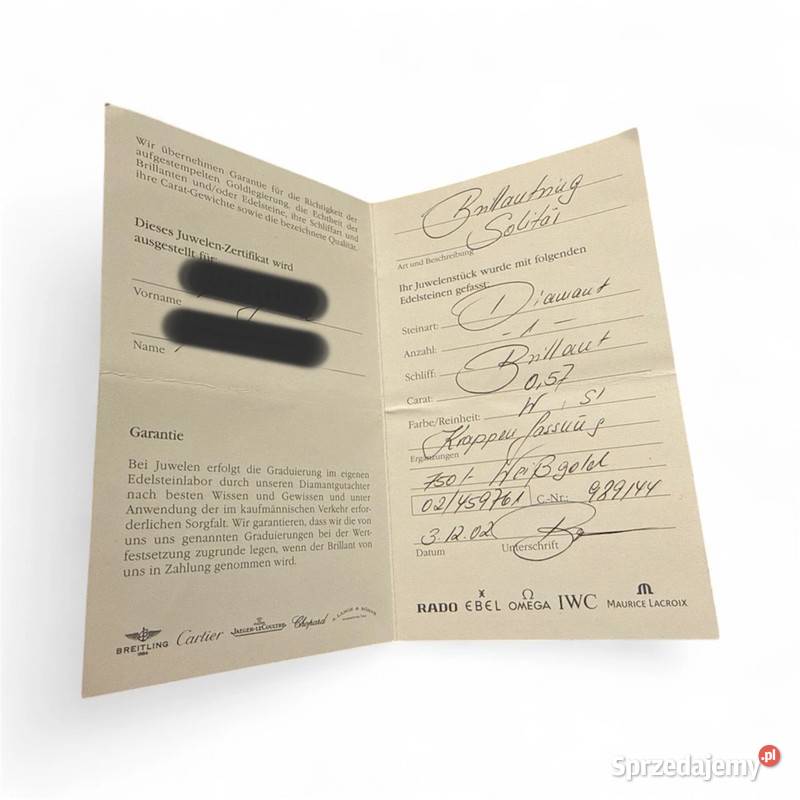 Wir übernehmen Garantie für die Richtigkeit der
aufgestempelten Goldlegierung, die Echtheit der
Brillanten und/oder Edelsteine, ihre Schliffart und
ihre Carat-Gewichte sowie die bezeichnete Qualität.
Dieses Juwelen-Zertifikat wird
ausgestellt für
Vorname
Name
Garantie
Bei Juwelen erfolgt die Graduierung im eigenen
Edelsteinlabor durch unseren Diamantgutachter
nach besten Wissen und Gewissen und unter
Anwendung der im kaufmännischen Verkehr erfor-
derlichen Sorgfalt. Wir garantieren, dass wir die von
uns uns genannten Graduierungen bei der Wert-
festsetzung zugrunde legen, wenn der Brillant von
uns in Zahlung genommen wird.
BREITLING
1884
Cartier
JAEGER-LECOULTRE
Chopard
A. LANGE & SÖHNE
Brillantring
Solitär
Art und Beschreibung
Ihr Juwelenstück wurde mit folgenden
Edelsteinen gefasst:
Steinart: Diamant
Anzahl: - 1 -
Schliff: Brillant
Carat: 0,57
Farbe/Reinheit: W, SI
Krappenfassung
Ergänzungen
750/- Weißgold
02/459761 C-Nr.: 989/44
3.12.02
Datum Unterschrift
RADO EBEL OMEGA IWC MAURICE LACROIX
Sprzedajemy.pl